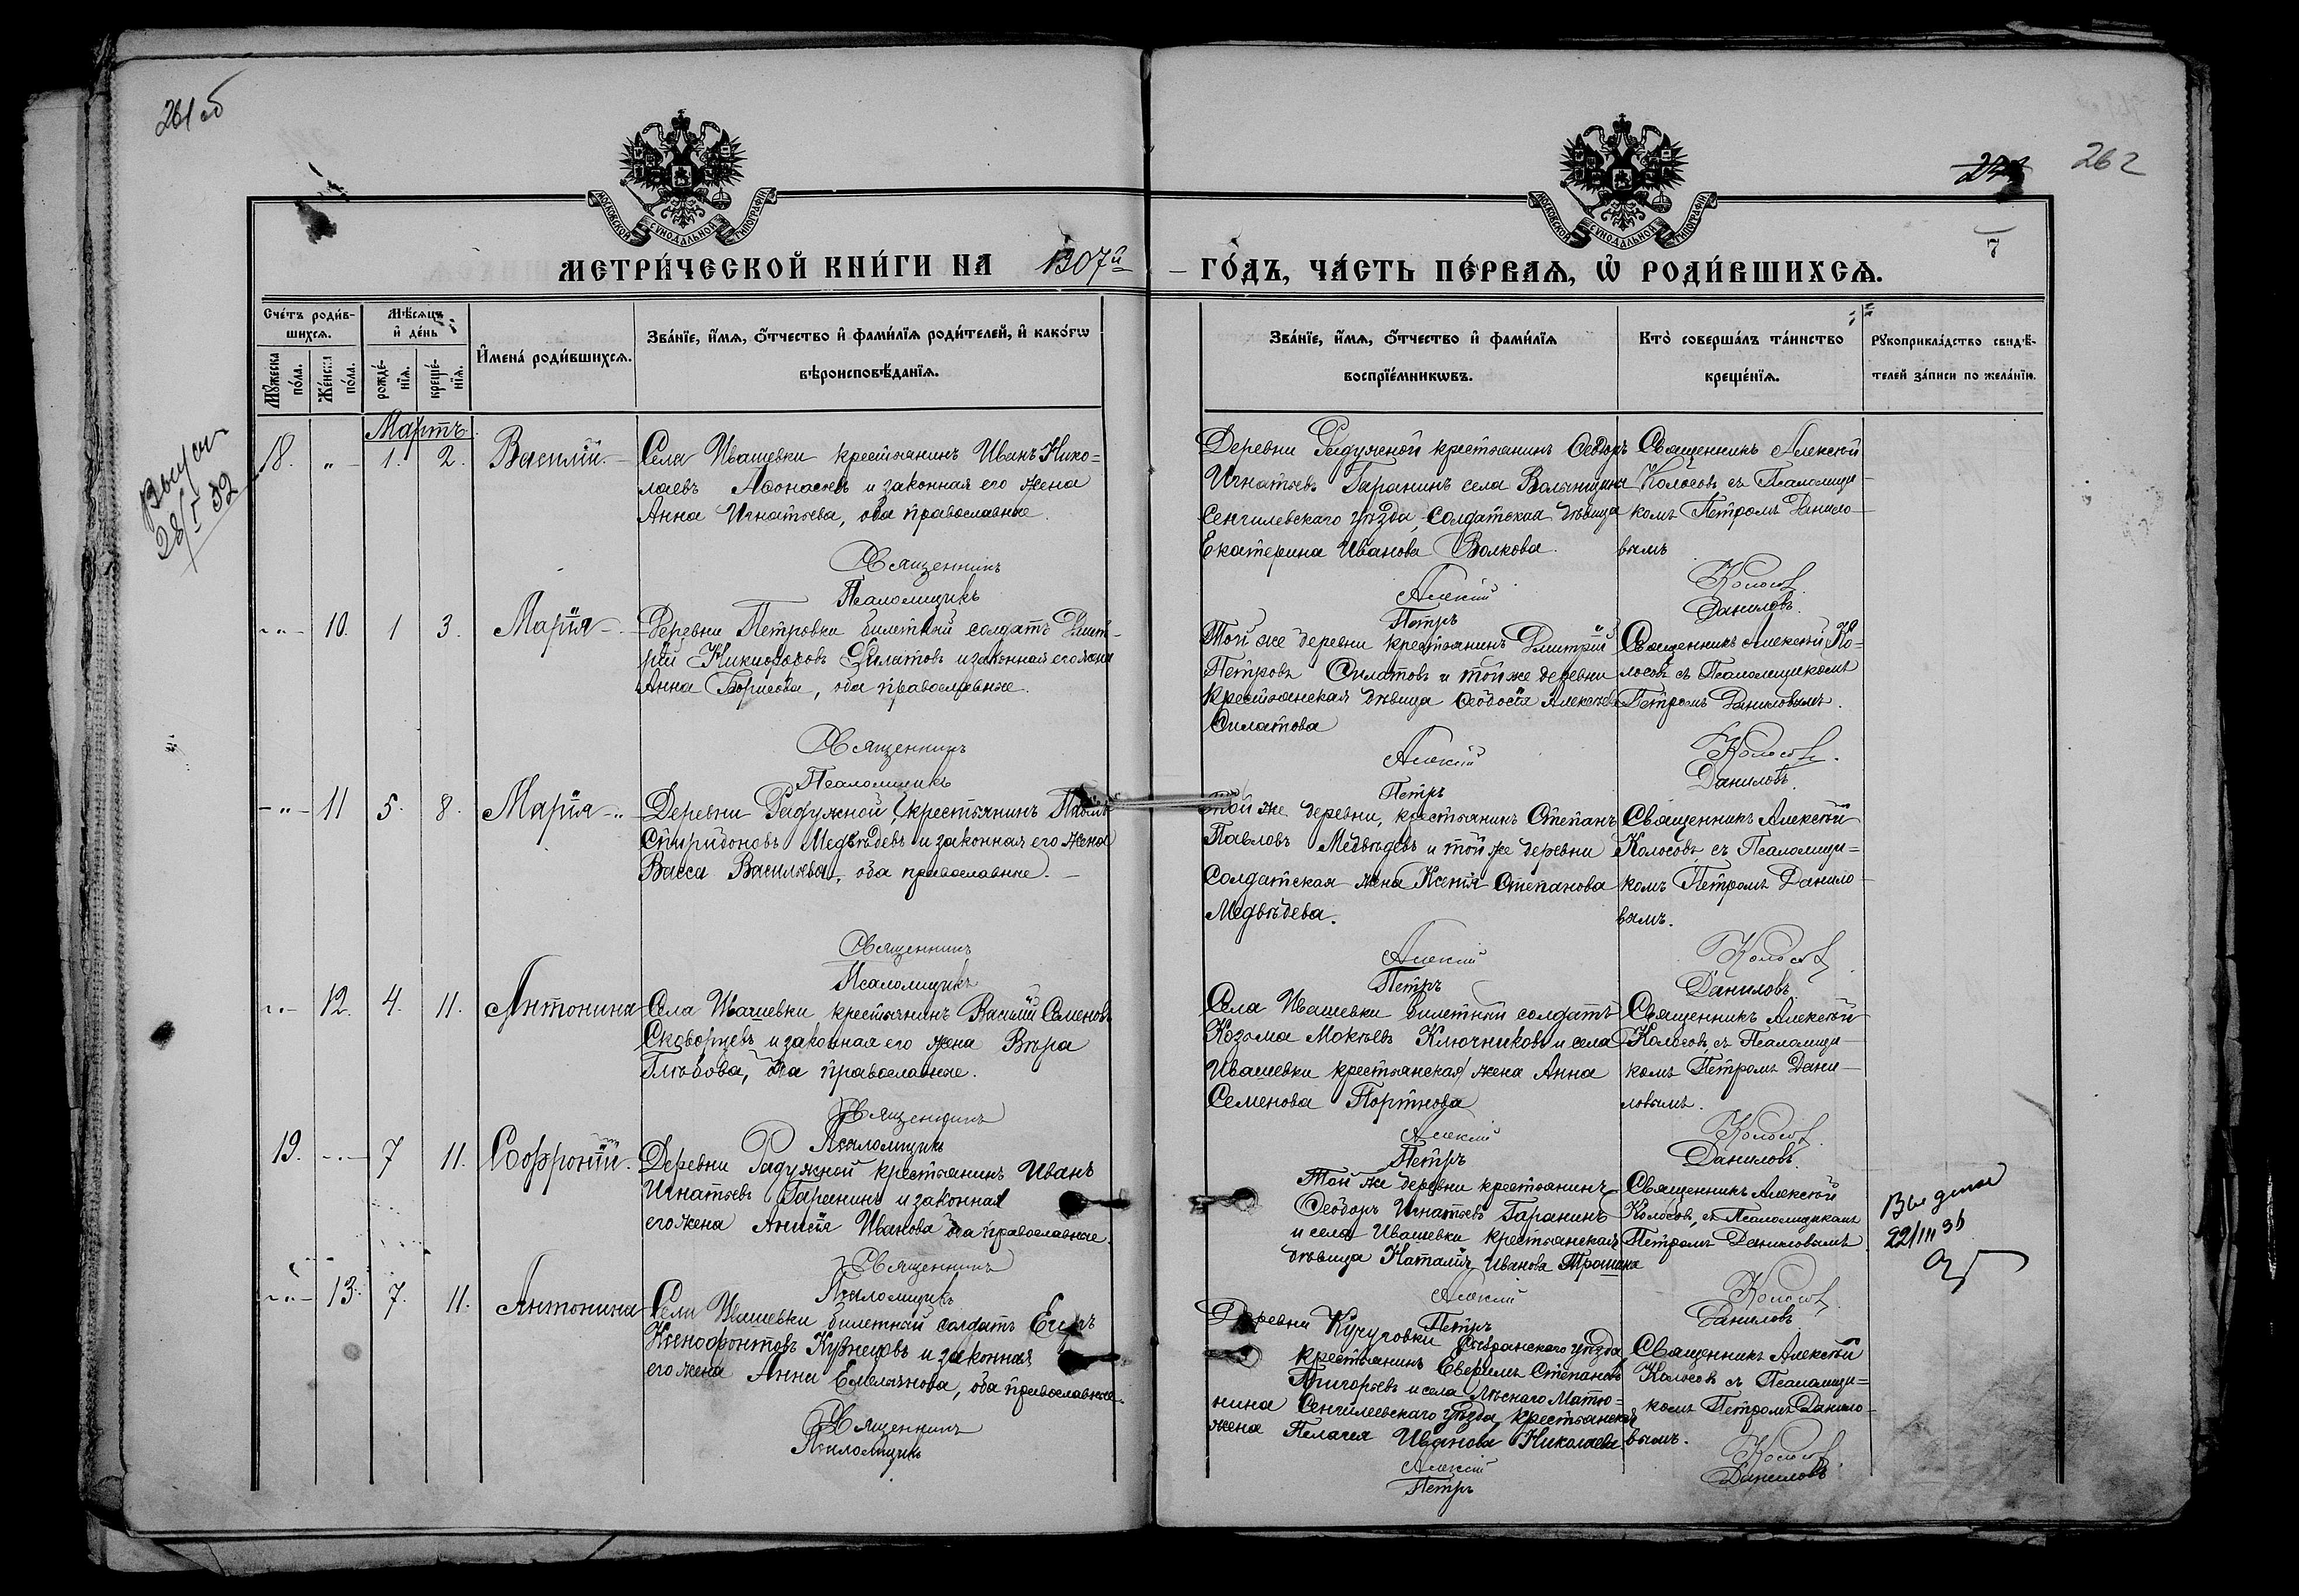 261 об
262
7
МОСКОВСКОЙ СУНОДАЛЬНОЙ ТИПОГРАФІИ
МОСКОВСКОЙ СУНОДАЛЬНОЙ ТИПОГРАФІИ
МЕТРИ́ЧЕСКОЙ КНИ́ГИ НА 1907й ГО́ДЪ, ЧА́СТЬ ПЕ́РВАѦ, Ѡ РОДИ́ВШИХСѦ.
Сче́тъ роди́в-
шихсѧ.
Мꙋжеска по́ла.
Же́нска по́ла.
Мѣ́сѧцъ
и҆ де́нь
рожде́-
нїѧ.
креще́-
нїѧ.
И҆мена̀ роди́вшихсѧ.
Зва́нїе, и҆́мѧ, ѻ҆́тчество и҆ фами́лїѧ роди́телей, и҆ како́гѡ
вѣроисповѣ́данїѧ.
Зва́нїе, и҆́мѧ, ѻ҆́тчество и҆ фами́лїѧ
воспрїе́мникѡвъ.
Кто̀ соверша́лъ та́инство
креще́нїѧ.
Рꙋкоприкла́дство свидѣ́-
телей за́писи по жела́нїю.
Мартъ
18. " 1. 2. Василій.
Села Ивашевки крестьянинъ Иванъ Нико=
лаевъ Афонасьевъ и законная его жена
Анна Игнатьева, оба православные.
Священникъ
Псаломщикъ
Деревни Радужной крестьянинъ Ѳеодоръ
Игнатьевъ Гаранинъ села
Сенгилевскаго уѣзда, солдатская дѣвица
Екатерина Иванова Волкова.
Алексій
Петръ
Священникъ Алексѣй
Колосовъ съ Псаломщи-
комъ Петромъ Данило-
вымъ
Колосовъ
Даниловъ.
" 10. 1 3. Марія
Деревни Петровки билетный солдатъ Дмит-
рій Никифоровъ Филатовъ и законная его жена
Анна Борисова, оба православные.
Священникъ
Псаломщикъ
Той же деревни крестьянинъ Дмитрій
Петровъ Филатовъ и той же деревни
крестьянская дѣвица Ѳеодосія Алексѣева
Филатова
Алексій
Петръ
Священникъ Алексѣй Ко=
лосовъ съ Псаломщикомъ
Петромъ Даниловымъ.
Колосовъ.
Даниловъ.
" 11 5. 8. Марія
Деревни Радужной, крестьянинъ Павелъ
Спиридоновъ Медвѣдевъ и законная его жена
Васса Васильева, оба православные.
Священникъ
Псаломщикъ
Той же деревни, крестьянинъ Степанъ
Павловъ Медвѣдевъ и той же деревни
солдатская жена Ксенія Степанова
Медвѣдева.
Алексій
Петръ
Священникъ Алексѣй
Колосовъ съ Псаломщи=
комъ Петромъ Данило-
вымъ.
Колосовъ
Даниловъ.
" 12. 4. 11. Антонина
Села Ивашевки крестьянинъ Василій Семеновъ
Скворцевъ и законная его жена Вѣра
Глѣбова, оба православные.
Священникъ
Псаломщикъ
Села Ивашевки билетный солдатъ
Козьма Мокѣевъ Ключниковъ и села
Ивашевки крестьянская жена Анна
Семенова Портнова
Алексій
Петръ
Священникъ Алексѣй
Колосовъ съ Псаломщи-
комъ Петромъ Дани-
ловымъ.
Колосовъ.
Даниловъ.
19. " 7 11. Софроній.
Деревни Радужной крестьянинъ Иванъ
Игнатьевъ Гаранинъ и законная
его жена Анисія Иванова оба православные.
Священникъ
Псаломщикъ
Той же деревни крестьянинъ
Ѳеодоръ Игнатьевъ Гаранинъ
и села Ивашевки крестьянская
дѣвица Наталія Иванова
Алексій
Петръ
Священникъ Алексѣй
Колосовъ, съ Псаломщикомъ
Петромъ Даниловымъ
Колосовъ.
Даниловъ
" 13. 7. 11. Антонина
Села Ивашевки билетный солдатъ Егоръ
Ксенофонтовъ Кузнецовъ и законная
его жена Анна Емельянова, оба православные.
Священникъ
Псаломщикъ
Деревни Кучуговки Сызранскаго уѣзда
крестьянинъ Ефремъ Степановъ
Григорьевъ и села Лѣснаго Матю=
нина Сенгилеевскаго уѣзда, крестьянская
жена Пелагея Иванова Николаева.
Алексій
Петръ
Священникъ Алексѣй
Колосовъ съ Псаломщи=
комъ Петромъ Данило=
вымъ.
Колосовъ.
Даниловъ
28/I 32
22/III